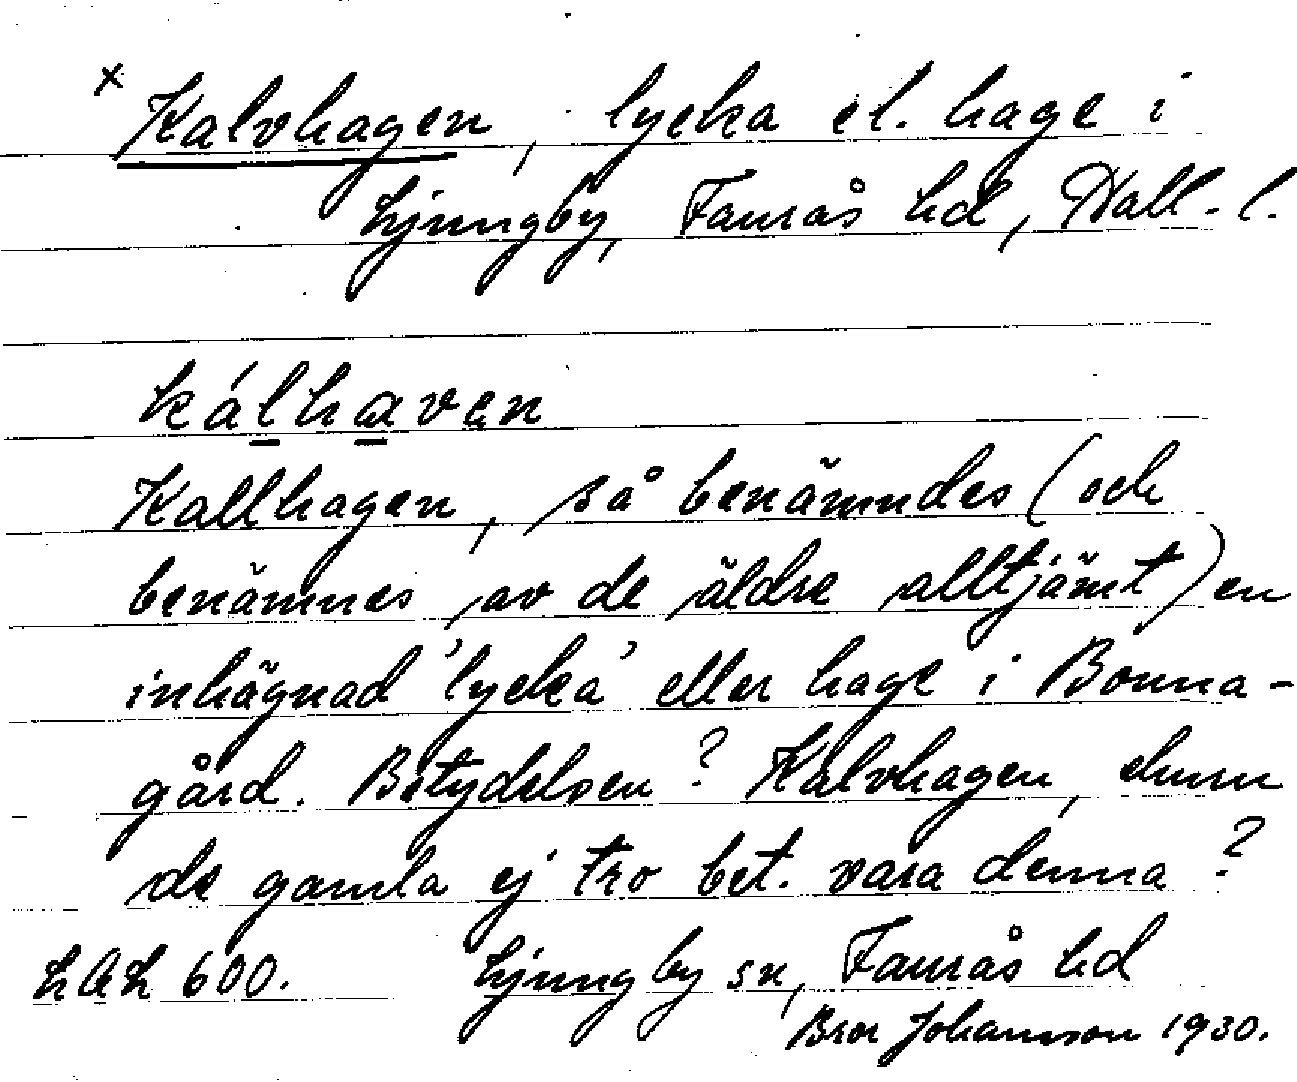 x Kalvhagen, lycka el. hage i
Ljungby, Faurås hd, Hall. l.
kálhaven
Kallhagen, så benämndes (och
benämnes av de äldre alltjämt) en
inhägnad 'lycka' eller hage i Bonna-
gård. Betydelsen? Kalvhagen, ehuru
de gamla ej tro bet. vara denna?
600. Ljungby sn, Faurås hd
Bror Johansson 1930.